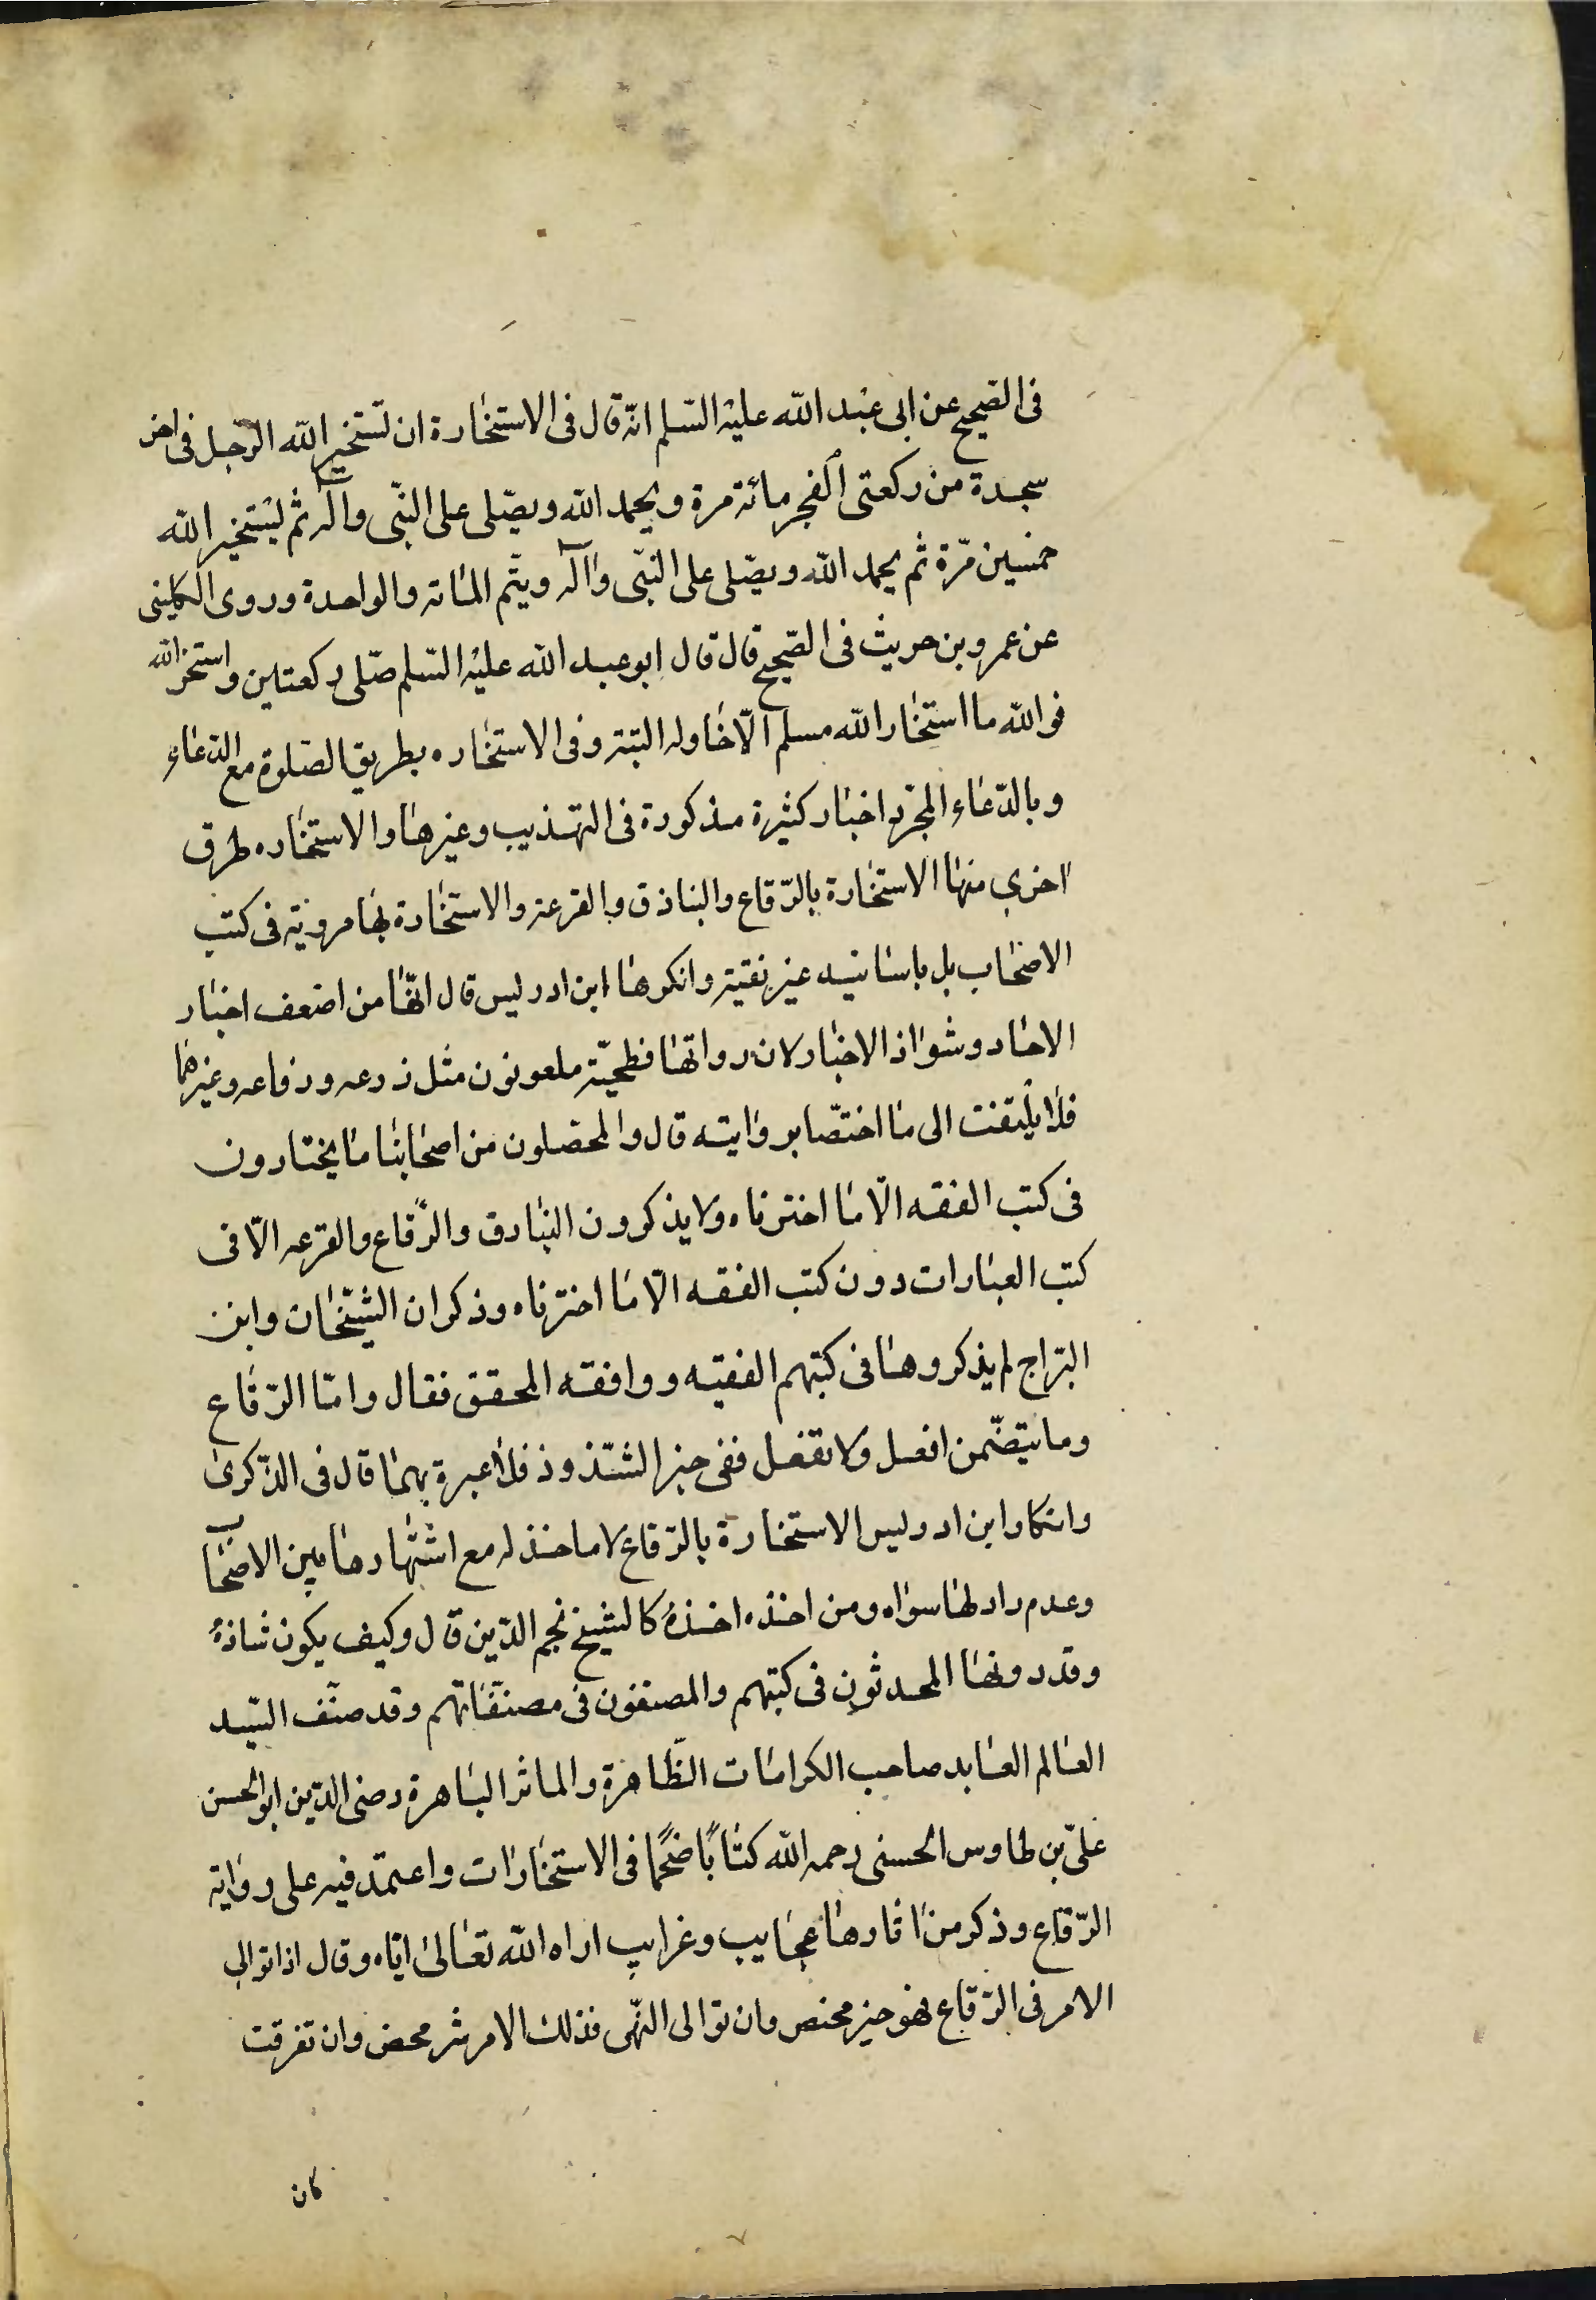 فى الصّحيح عن ابى عبد الله عليه السّلم انّه قال فى الاستخارة ان تستخير الله الرّجل فى اخر
سجدة من ركعتى الفجر مائة مرة ويحمد الله ويصّلى على النّبى وآله ثم ليستخير الله
خمسين مّرة ثم يحمد الله ويصّلى على النّبى وآله ويتّم الماته والواحدة وروى الكلينى
عن عمرو بن حريث فى الصّحيح قال قال ابو عبد الله عليه السّلم صّلى ركعتين واستخر الله
فوالله ما استخار الله مسلم الّا خاوله البّتة وفى الاستخاره بطريق الصّلوة مع الدّعاء
وبالدّعاء المجّرد اخبار كثيرة مذكورة فى التهذيب وغيرها والاستخاره طرق
اخرى منها الاستخارة بالرّقاع والبناذق والقرعة والاستخارة بها مروّية فى كتب
الاصحاب بل باسانيد غير نقيّة وانكرها ابن ادريس قال انّها من اضعف اخبار
الاحاد وشواذ الاخبار لان رواتها فطحيّة ملعونون مثل ذرعه ورفاعه وغيرهما
فلا يلتفت الى ما اختصّا بروايته قال والمحصلون من اصحابنا ما يختارون
فى كتب الفقه الّا ما اخترناه ولا يذكرون البنادق والرّقاع والقرعه الّا فى
كتب العبارات دون كتب الفقه الّا ما اخترناه وذكر ان الشّيخان وابن
البّراج لم يذكروها فى كتبهم الفقيه ووافقه المحقق فقال وامّا الرّقاع
وما يتضّمن افعل ولا تفعل ففى حيز الشّذوذ فلا عبرة بهما قال فى الذّكرى
وانكار ابن ادريس الاستخارة بالرّقاع لا ماخذ له مع اشتهارها بين الاصحاب
وعدم راد لها سواه ومن اخذه اخذهُ كالشيخ نجم الدّين قال وكيف يكون شاذهُ
وقد دونها المحدثون فى كتبهم والمصنفون فى مصنّفاتهم وقد صنّف السّيد
العالم العابد صاحب الكرامات الظّاهرة والماثر الباهرة رضى الدّين ابو الحسن
علىّ بن طاوس الحسنى رحمه الله كتاباً ضخماً فى الاستخارات واعتمد فيه على رواية
الرّقاع وذكر من اثارها عجايب وغرايب اراه الله تعالى ايّاه وقال اذا توالى
الامر فى الرّقاع فهو خير محض وان توالى النّهى فذلك الامر شر محض وان تفرقت
كان